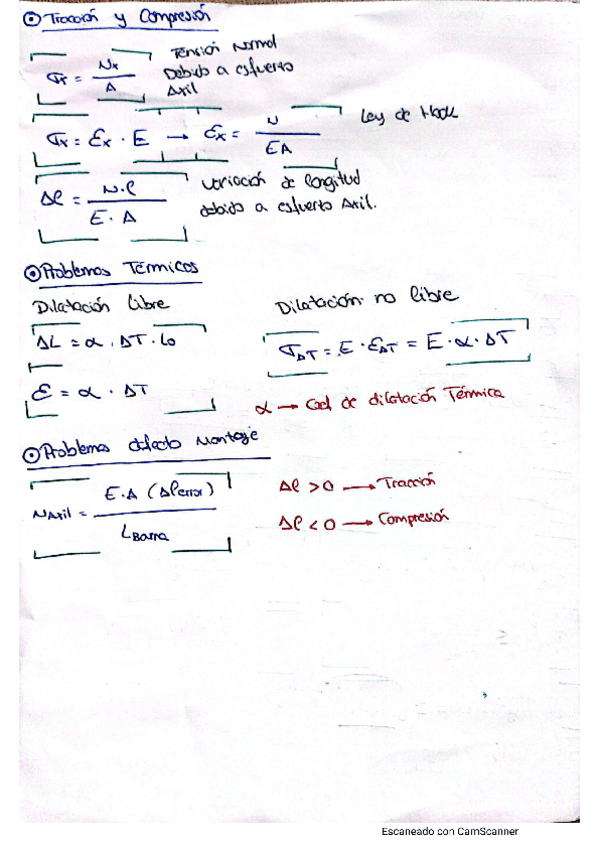 ⊙ Tracción y Compresión
σx = Nx / A Tensión Normal
Debido a esfuerzo
Axil
σx = Ɛx · E → Ɛx = N / EA Ley de Hook
Δl = N·l / E·A Variación de longitud
debido a esfuerzo Axil.
⊙ Problemas Térmicos
Dilatación Libre Dilatación no libre
ΔL = α · ΔT · Lo σΔT = E · ƐΔT = E · α · ΔT
Ɛ = α · ΔT
α → Coef de dilatación Térmica
⊙ Problemas defecto Montaje
NAxil = E·A (Δl error) / LBarra
Δl > 0 → Tracción
Δl < 0 → Compresión
Escaneado con CamScanner